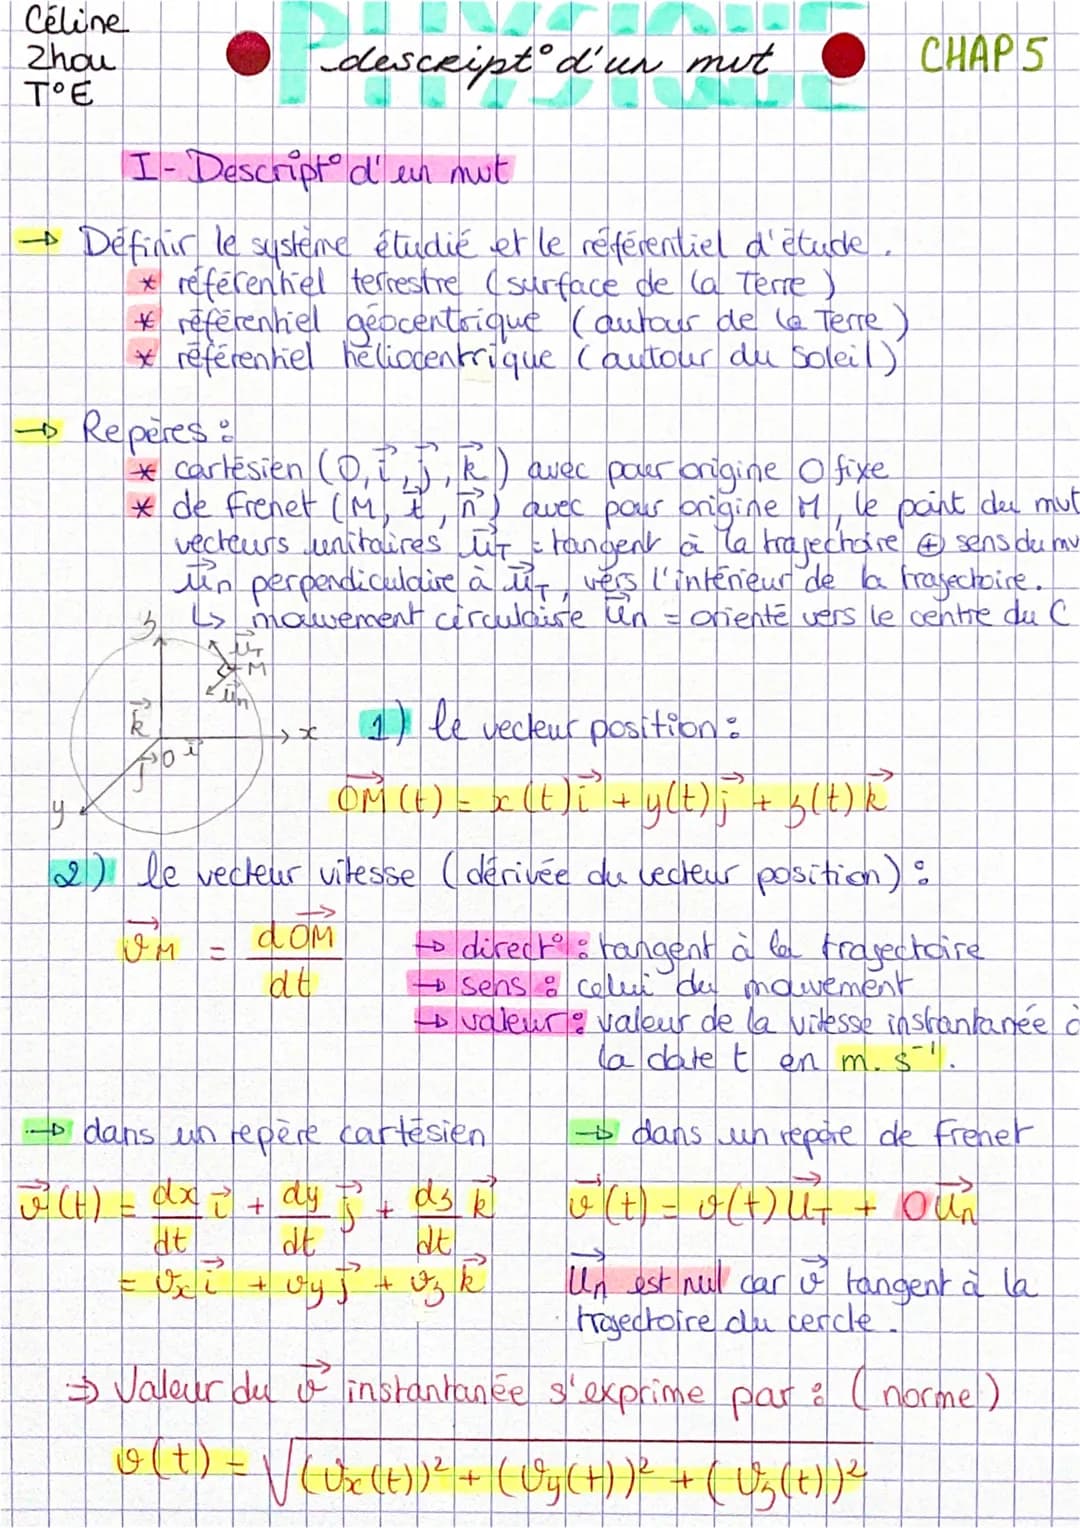 Céline
Zhou
T°E
PHYSIQUE
descript° d'un mvt
CHAP 5
I- Descript° d'un mvt
→ Définir le système étudié et le référentiel d'étude.
* référentiel terrestre (surface de la Terre)
* référentiel géocentrique (autour de la Terre)
* référentiel héliocentrique (autour du Soleil)
→ Repères :
* cartésien (O, i⃗, j⃗, k⃗) avec pour origine O fixe
* de Frenet (M, t⃗, n⃗) avec pour origine M, le point du mvt
vecteurs unitaires u⃗T = tangent à la trajectoire ⊕ sens du mv
u⃗n perpendiculaire à u⃗T, vers l'intérieur de la trajectoire.
↳ mouvement circulaire u⃗n = orienté vers le centre du C
z
u⃗T
M
u⃗n
k⃗
x
O i⃗
j⃗
y
1) le vecteur position :
OM⃗(t) = x(t) i⃗ + y(t) j⃗ + z(t) k⃗
2) le vecteur vitesse (dérivée du vecteur position) :
v⃗M = dOM⃗/dt
→ direct° : tangent à la trajectoire
→ sens : celui du mouvement
→ valeur : valeur de la vitesse instantanée à
la date t en m.s⁻¹.
→ dans un repère cartésien
v⃗(t) = dx/dt i⃗ + dy/dt j⃗ + dz/dt k⃗
= vx i⃗ + vy j⃗ + vz k⃗
→ dans un repère de Frenet
v⃗(t) = v(t) u⃗T + 0 u⃗n
u⃗n est nul car v⃗ tangent à la
trajectoire du cercle.
⇒ Valeur du v⃗ instantanée s'exprime par : (norme)
v(t) = √((vx(t))² + (vy(t))² + (vz(t))²